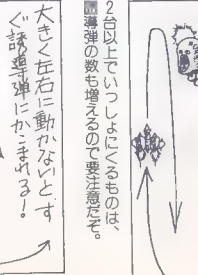 2台以上でいっしょにくるものは、
導弾の数も増えるので要注意だぞ。
大きく左右に動かないとす
ぐ誘導弾にかこまれる!。